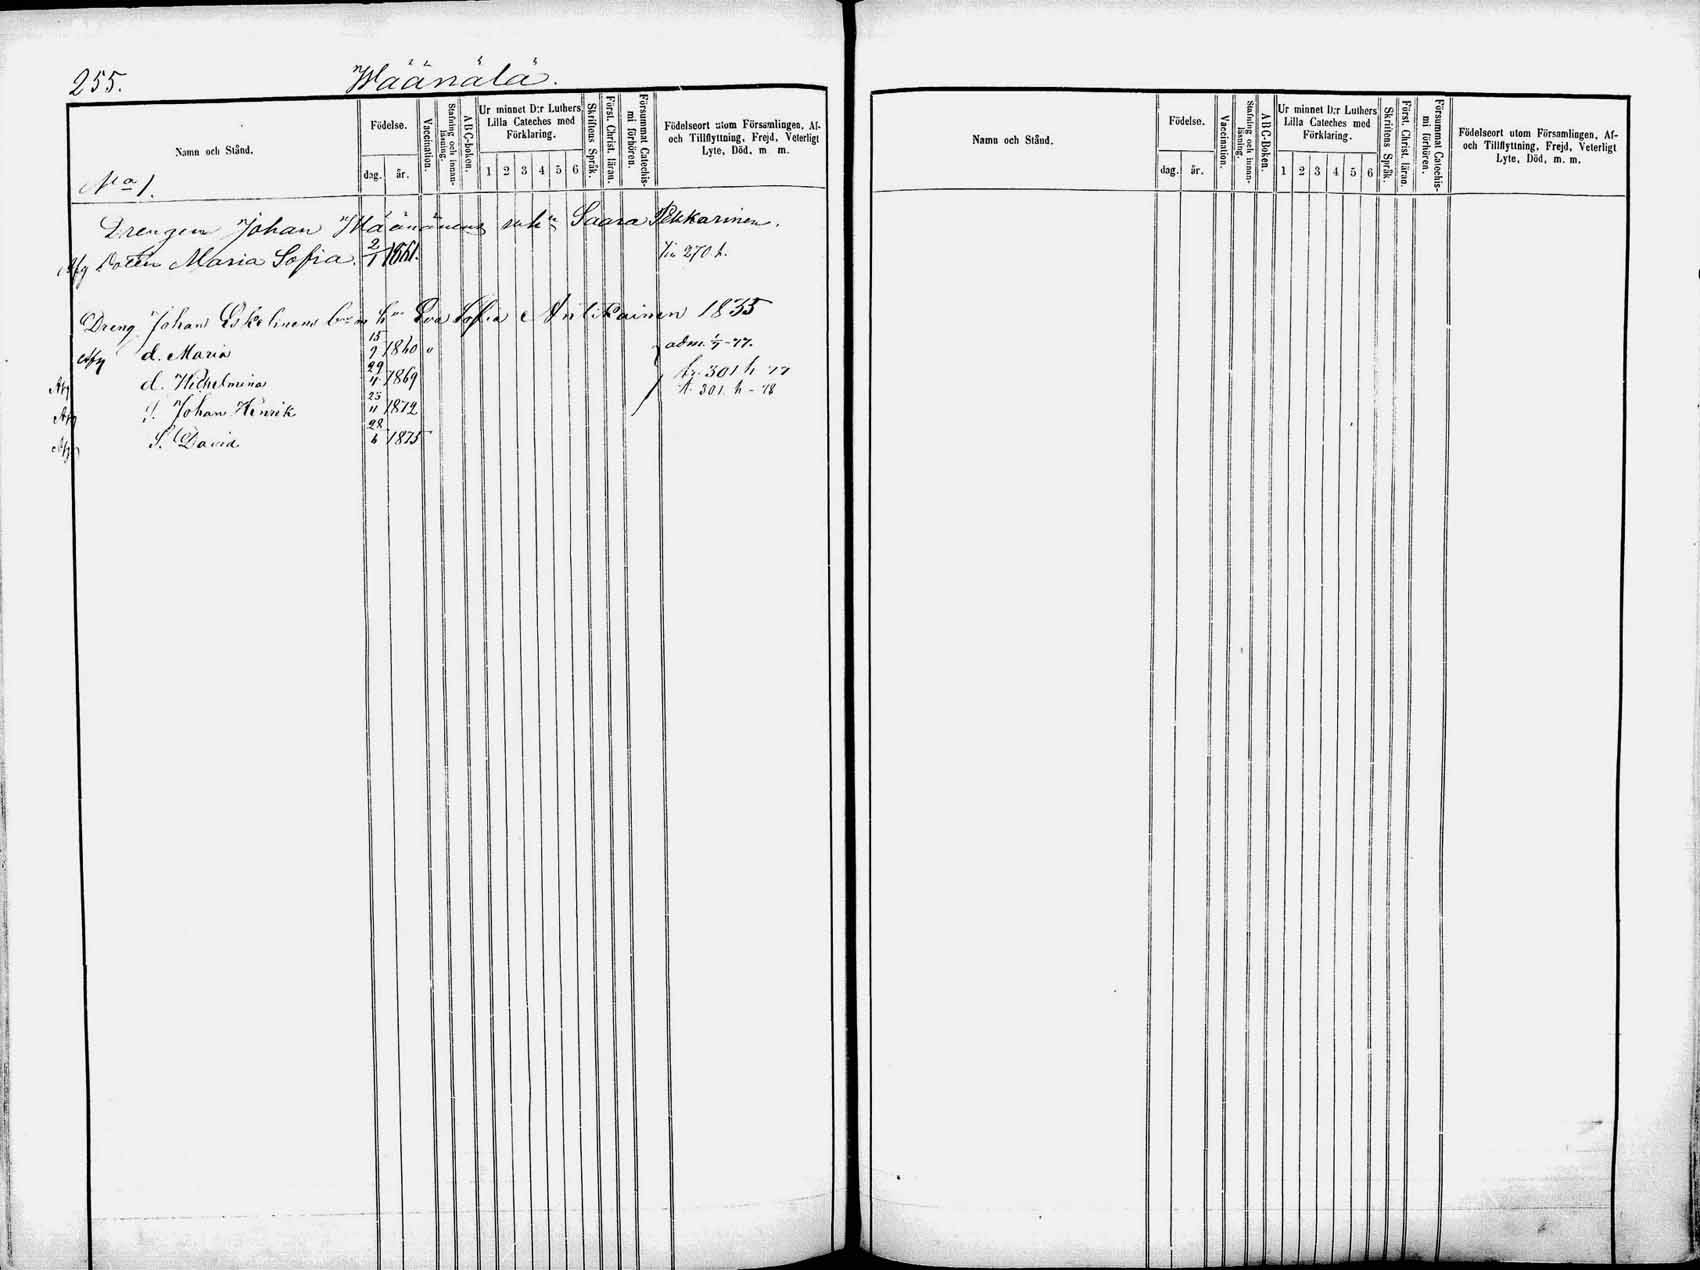 255.
Wäänälä.
Namn och Stånd.
Födelse.
dag.
år.
Vaccination.
Stafning och innan-
läsning.
ABC-boken.
Ur minnet D:r Luthers
Lilla Cateches med
Förklaring.
1 2 3 4 5 6
Skriftens Språk.
Först. Christ. läran.
Försummat Catechis-
mi förhören.
Födelseort utom Församlingen, Af-
och Tillflyttning, Frejd, Veterligt
Lyte, Död, m m.
No 1.
Drengen Johan Wäänänens Saara Pekkarinen.
Afg Dotter Maria Sofia. 2/1 1861. 270 h.
Dreng Johan Eskelinens Eva Sofia Antikainen 1835
Afg d. Maria 15/9 1860 " adm. 1/7 -77.
Afg d. Wilhelmina 29/4 1869 301 h 77
Afg s. Johan Henrik 23/11 1872 301 h - 78
Afg S. David 28/6 1875
Namn och Stånd.
Födelse.
dag.
år.
Vaccination.
Stafning och innan-
läsning.
ABC-Boken.
Ur minnet D:r Luthers
Lilla Cateches med
Förklaring.
1 2 3 4 5 6
Skriftens Språk.
Först. Christ. läran.
Försummat Catechis-
mi förhören.
Födelseort utom Församlingen, Af-
och Tillflyttning, Frejd, Veterligt
Lyte, Död, m. m.